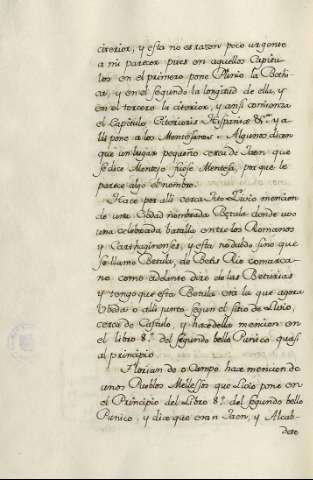 citerior, y esta no es razon poco urgente
a mi parecer pues en aquellos Capitu-
los en el primero pone Plinio la Beti-
ca, y en el segundo la longitud de ella, y
en el tercero la citerior, y ansi comienza
el Capitulo Citerioris Hispaniæ &ª y a
lli pone a los Mentesanos. Algunos dicen
que un lugar pequeño cerca de Jaen que
se dice Mentexo fuese Mentesa, por que le
parece algo el nombre.
Hace por alli cerca Tito Livio mencion
de una Ciudad nombrada Betula donde uvo
una celebrada batalla entre los Romanos
y Carthaginenses, y esta no dudo sino que
se llamo Betula, de Betis Rio comarca-
no como adelante diré de las Beturias
y tengo que esta Betula era la que agora
Ubeda o alli junto segun el sitio de Livio,
cerca de Castulo, y hace della mencion en
el libro 8º del segundo bello Punico quasi
al principio
Florian do Campo hace mencion de
unos Pueblos Melessos que Livio pone en
el Principio del Libro 8º del segundo bello
Punico, y dice que eran Jaen, y Alcab-
dete